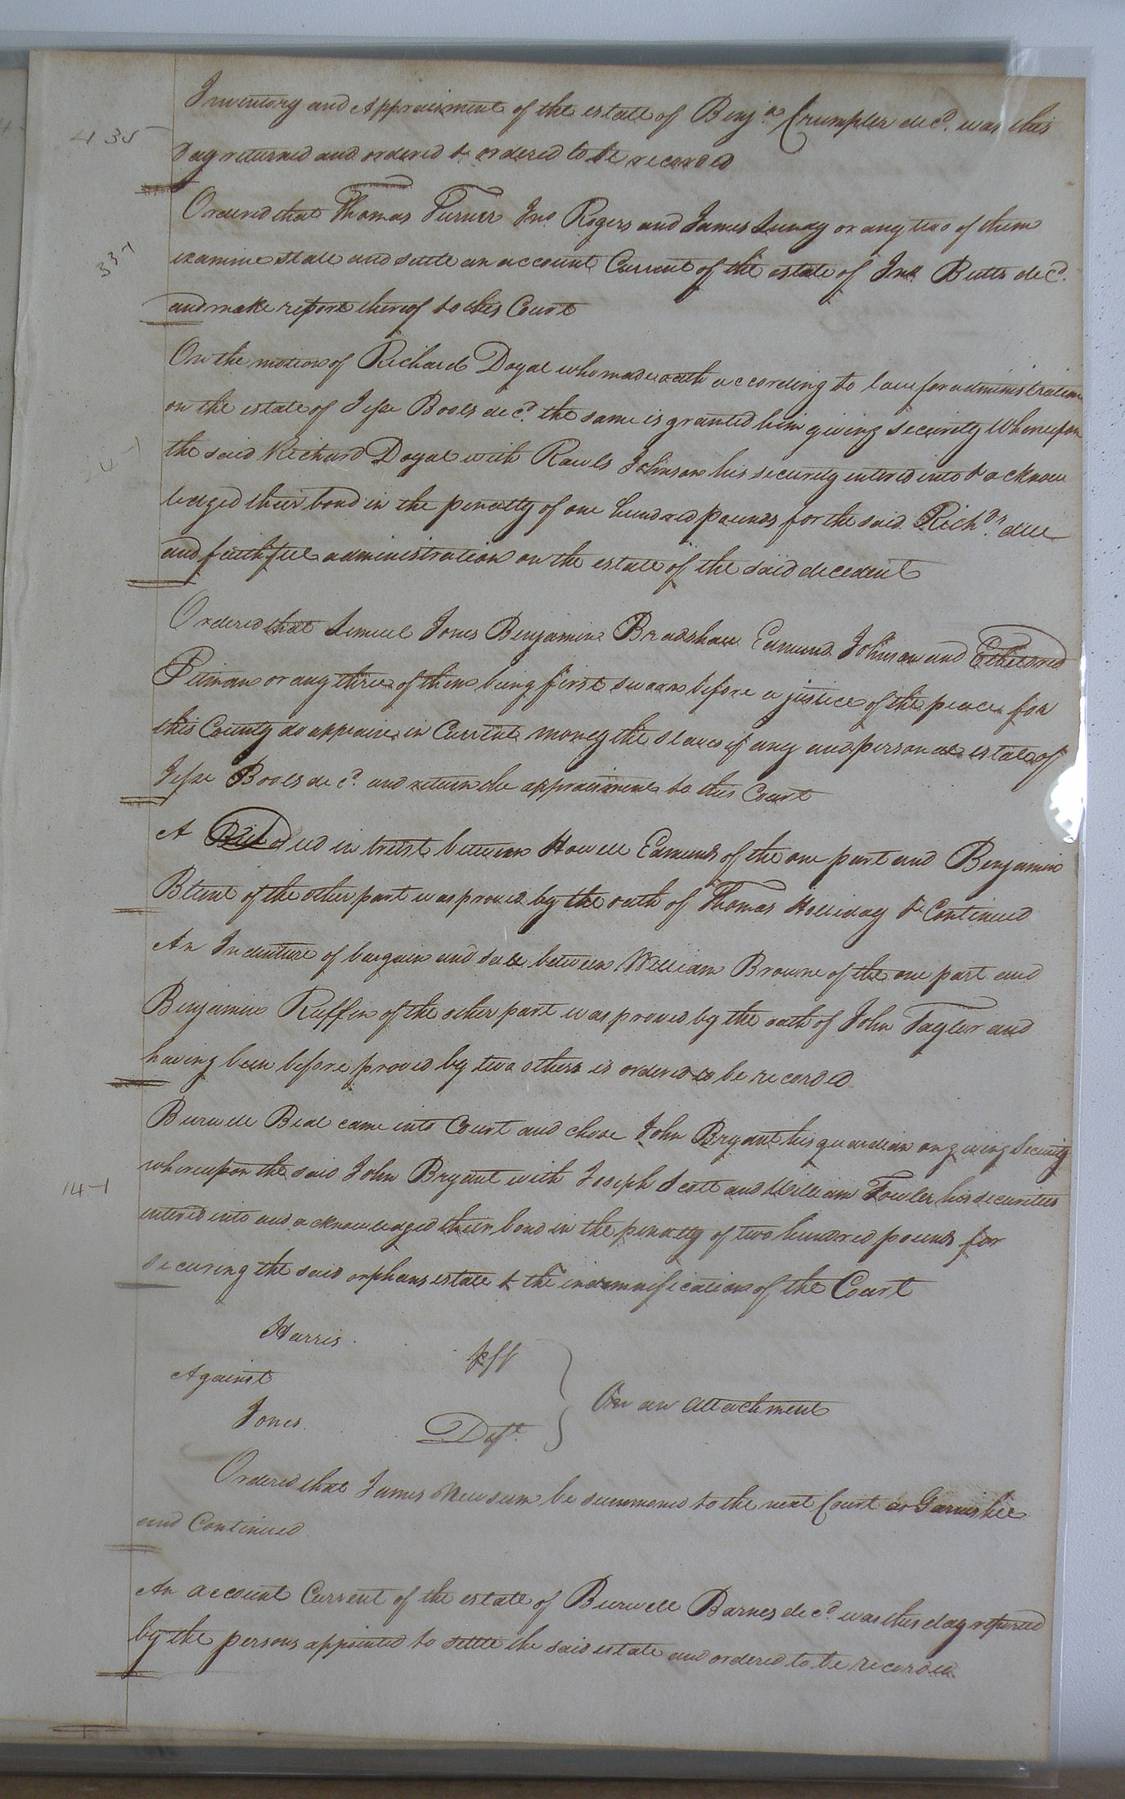 Inventory and Appraisment of the estate of Benja Crumpler decd. was this
435
day returned and ordered & ordered to be recorded
Ordered that Thomas Turner Jno Rogers and James Lundy or any two of them
337
examine state and settle an account Current of the estate of Jno Butts decd.
and make report thereof to this Court
On the motion of Richard Doyal who made oath according to law for administration
on the estate of Jesse Bools decd. the same is granted him giving security Whereupon
the said Richard Doyal with Rawls Johnson his security entered into & acknow
ledged their bond in the penalty of one hundred pounds for the said Richds. due
and faithful administration on the estate of the said decedent
Ordered that Lemuel Jones Benjamin Bradshaw Edmund Johnson and Etheldred
Pitman or any three of them being first sworn before a justice of the peace for
this County do appraise in Current money the slaves if any and personal estate of
Jesse Bools decd. and return the appraisment to this Court
A deed in trust between Howell Edmunds of the one part and Benjamin
Blunt of the other part was proved by the oath of Thomas Holliday & Continued
An Indenture of bargain and sale between William Browne of the one part and
Benjamin Ruffin of the other part was proved by the oath of John Taylor and
having been before proved by two others is ordered to be recorded
Burwell Beal came into Court and chose John Bryant his guardian on giving Security
14-1
whereupon the said John Bryant with Joseph Scott and William Fowler his securities
entered into and acknowledged their bond in the penalty of two hundred pounds for
securing the said orphans estate & the indemnification of the Court
Harris
plf
Against
On an attachment
Jones
Deft.
Ordered that James Newsum be summoned to the next Court as Garnishee
and Continued
An account Current of the estate of Burwell Barnes decd was this day returned
by the persons appointed to settle the said estate and ordered to be recorded